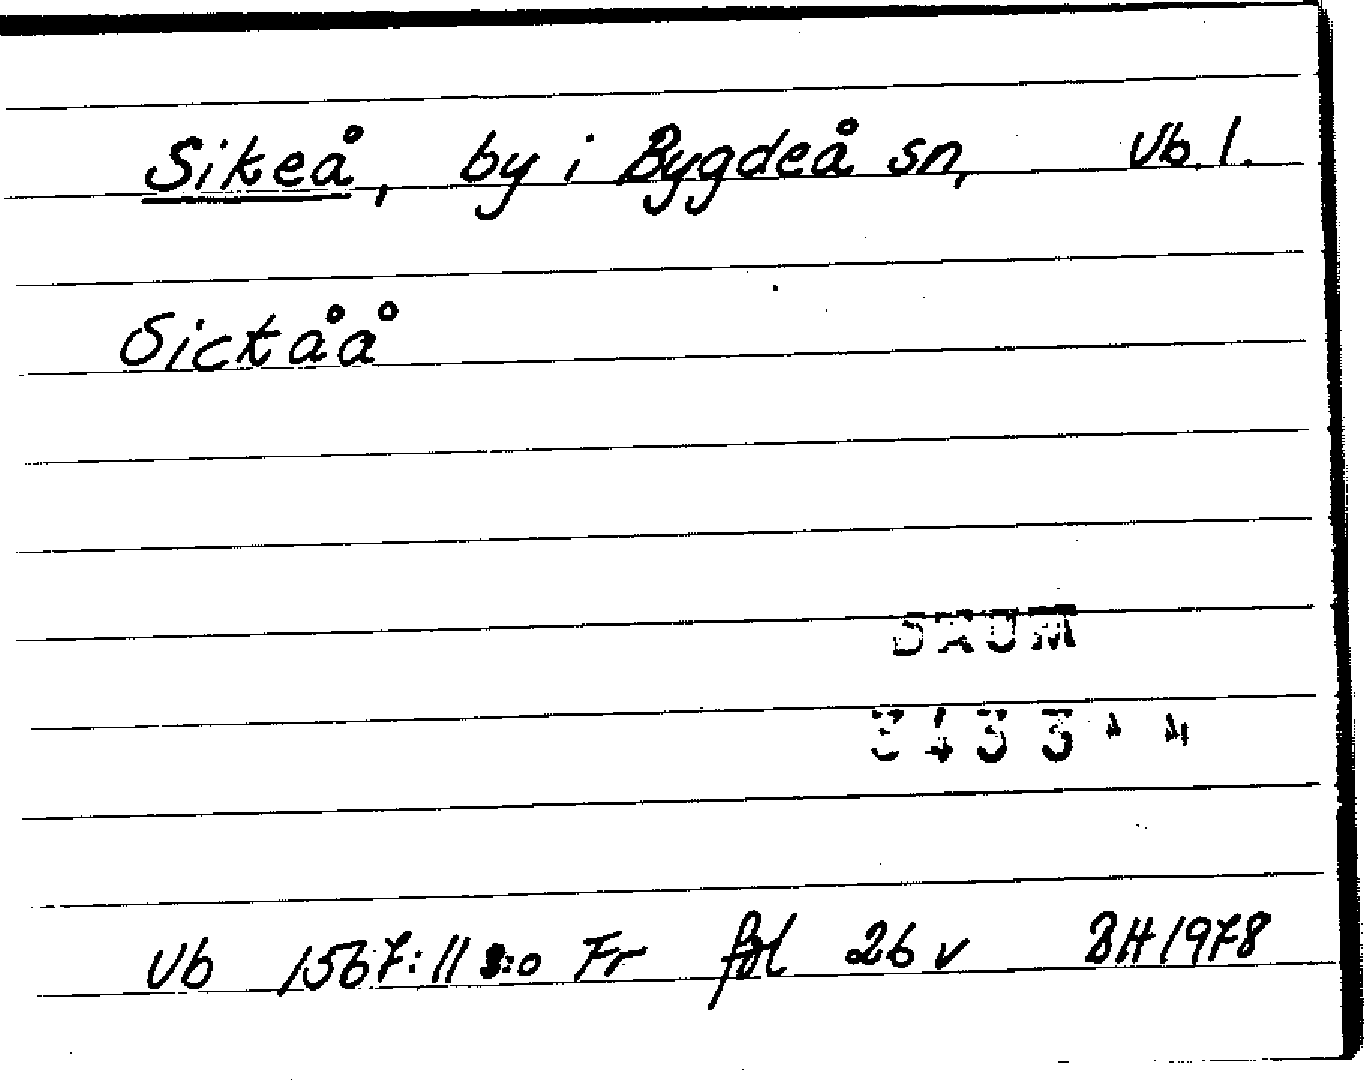 Sikeå, by i Bygdeå sn, Vb. l.
Sicktåå
DAUM
3433
Vb 1567:11 s:o Fr fol 26 v BH 1978